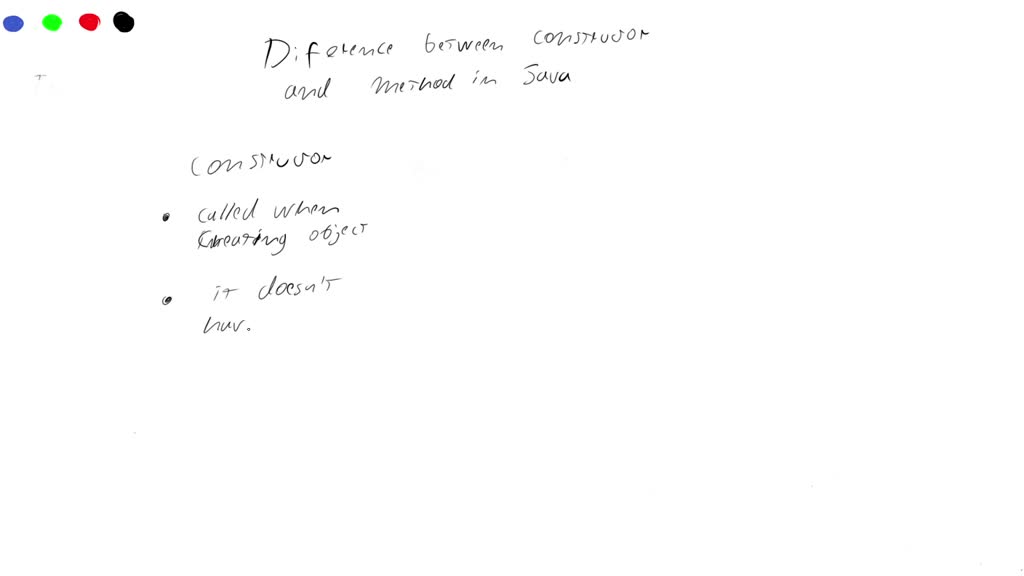 Diference between constructor
and method in Java
constructor
• called when
creating object
• it doesn't
hav.